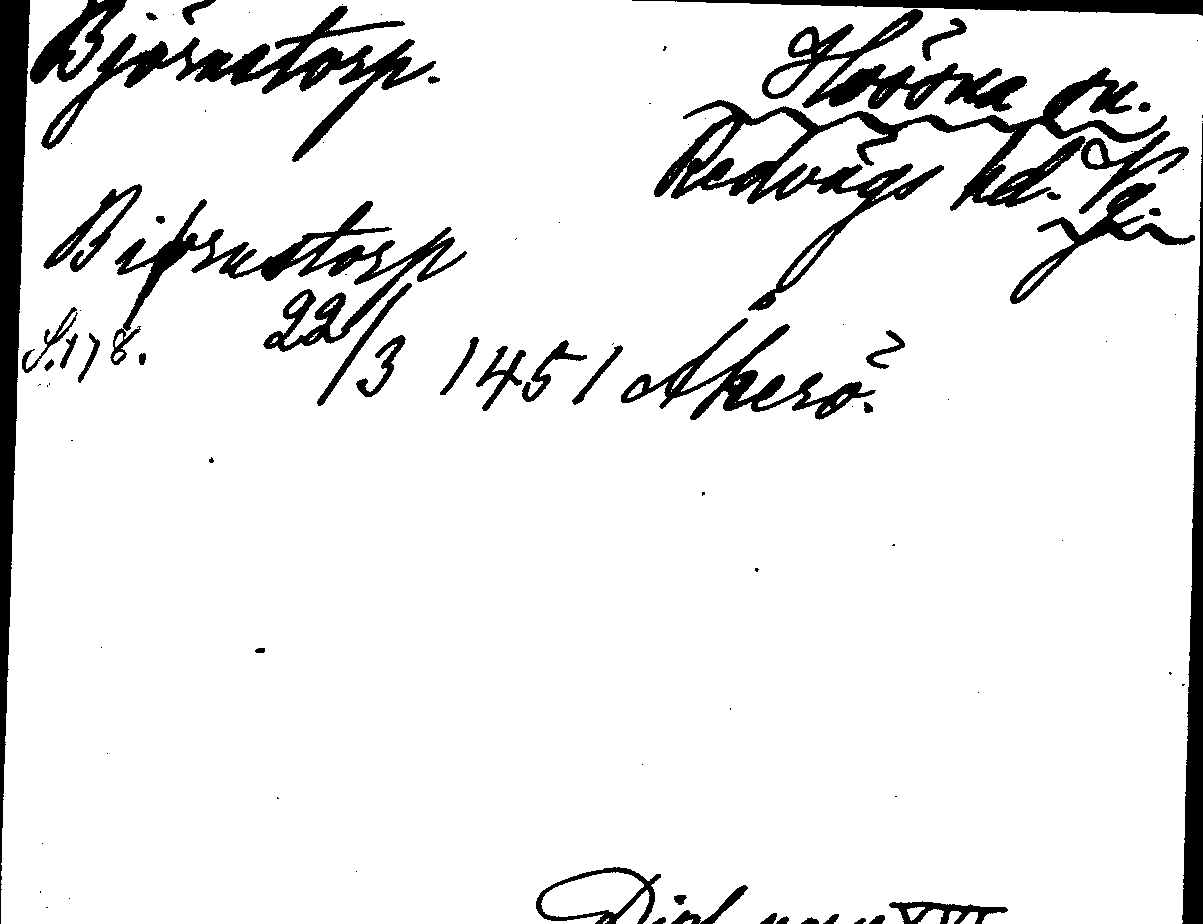 Björnstorp.
Hössna sn.
Redvägs hd. Vg.
Biørnstorp
S. 178. 22/3 1451 Åkerö.
Dipl. norv. XVI